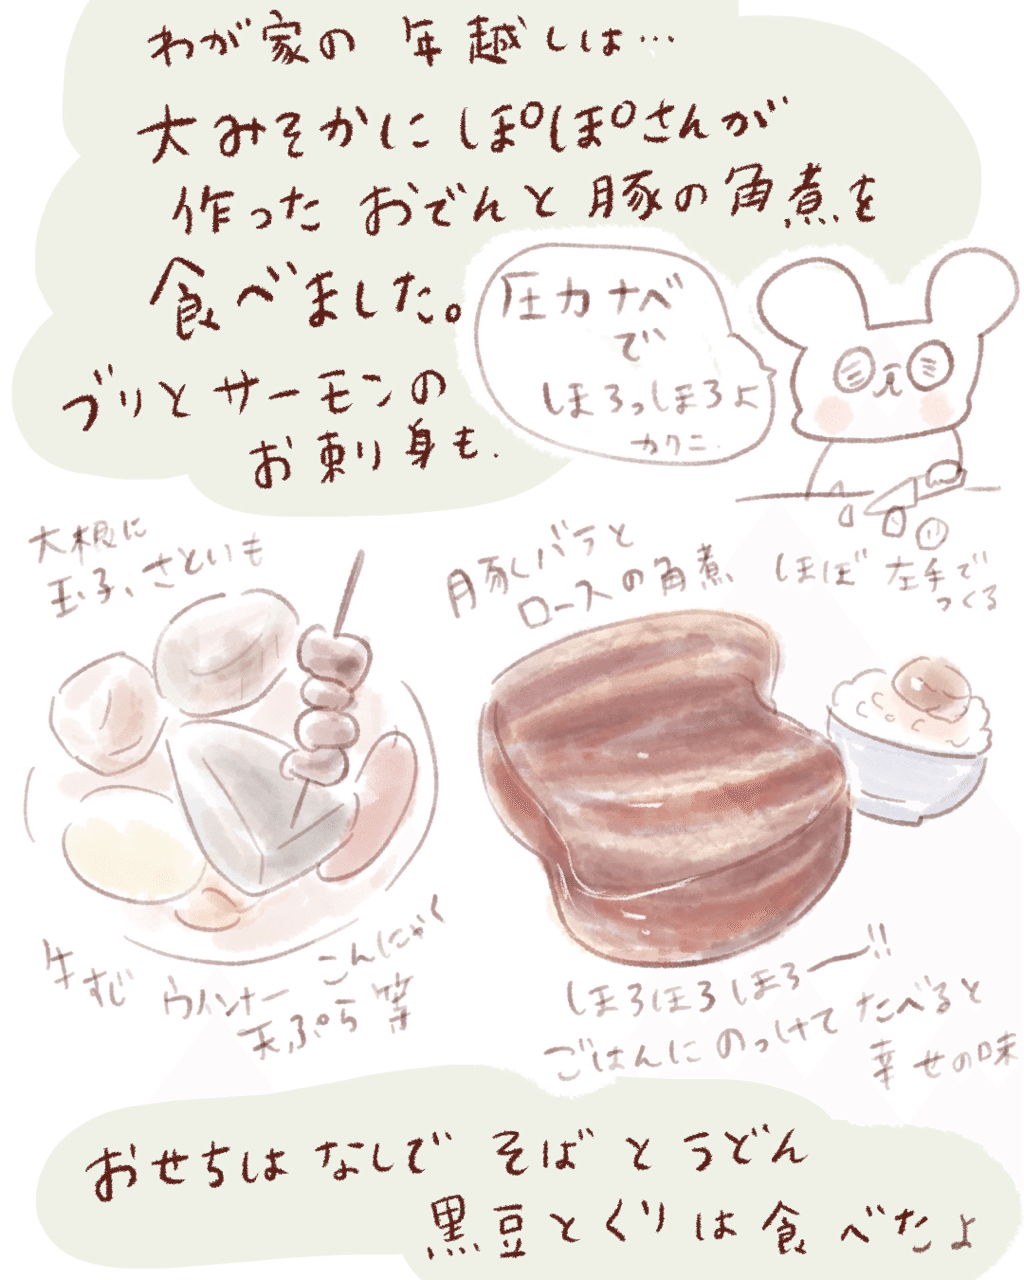 わが家の 年越しは…
大みそかに ぽぽさんが
作った おでんと 豚の角煮を
食べました。
ブリと サーモンの
お刺身も.
圧力ナベ
で
ほろっほろよ
カクニ.
大根に
玉子、さといも
豚バラと
ロースの角煮
ほぼ 左手で
つくる
牛すじ ウインナー こんにゃく
天ぷら 等
ほろほろ ほろー!!
ごはんに のっけて たべると
幸せの味
おせちは なしで そばと うどん
黒豆と くりは 食べたよ